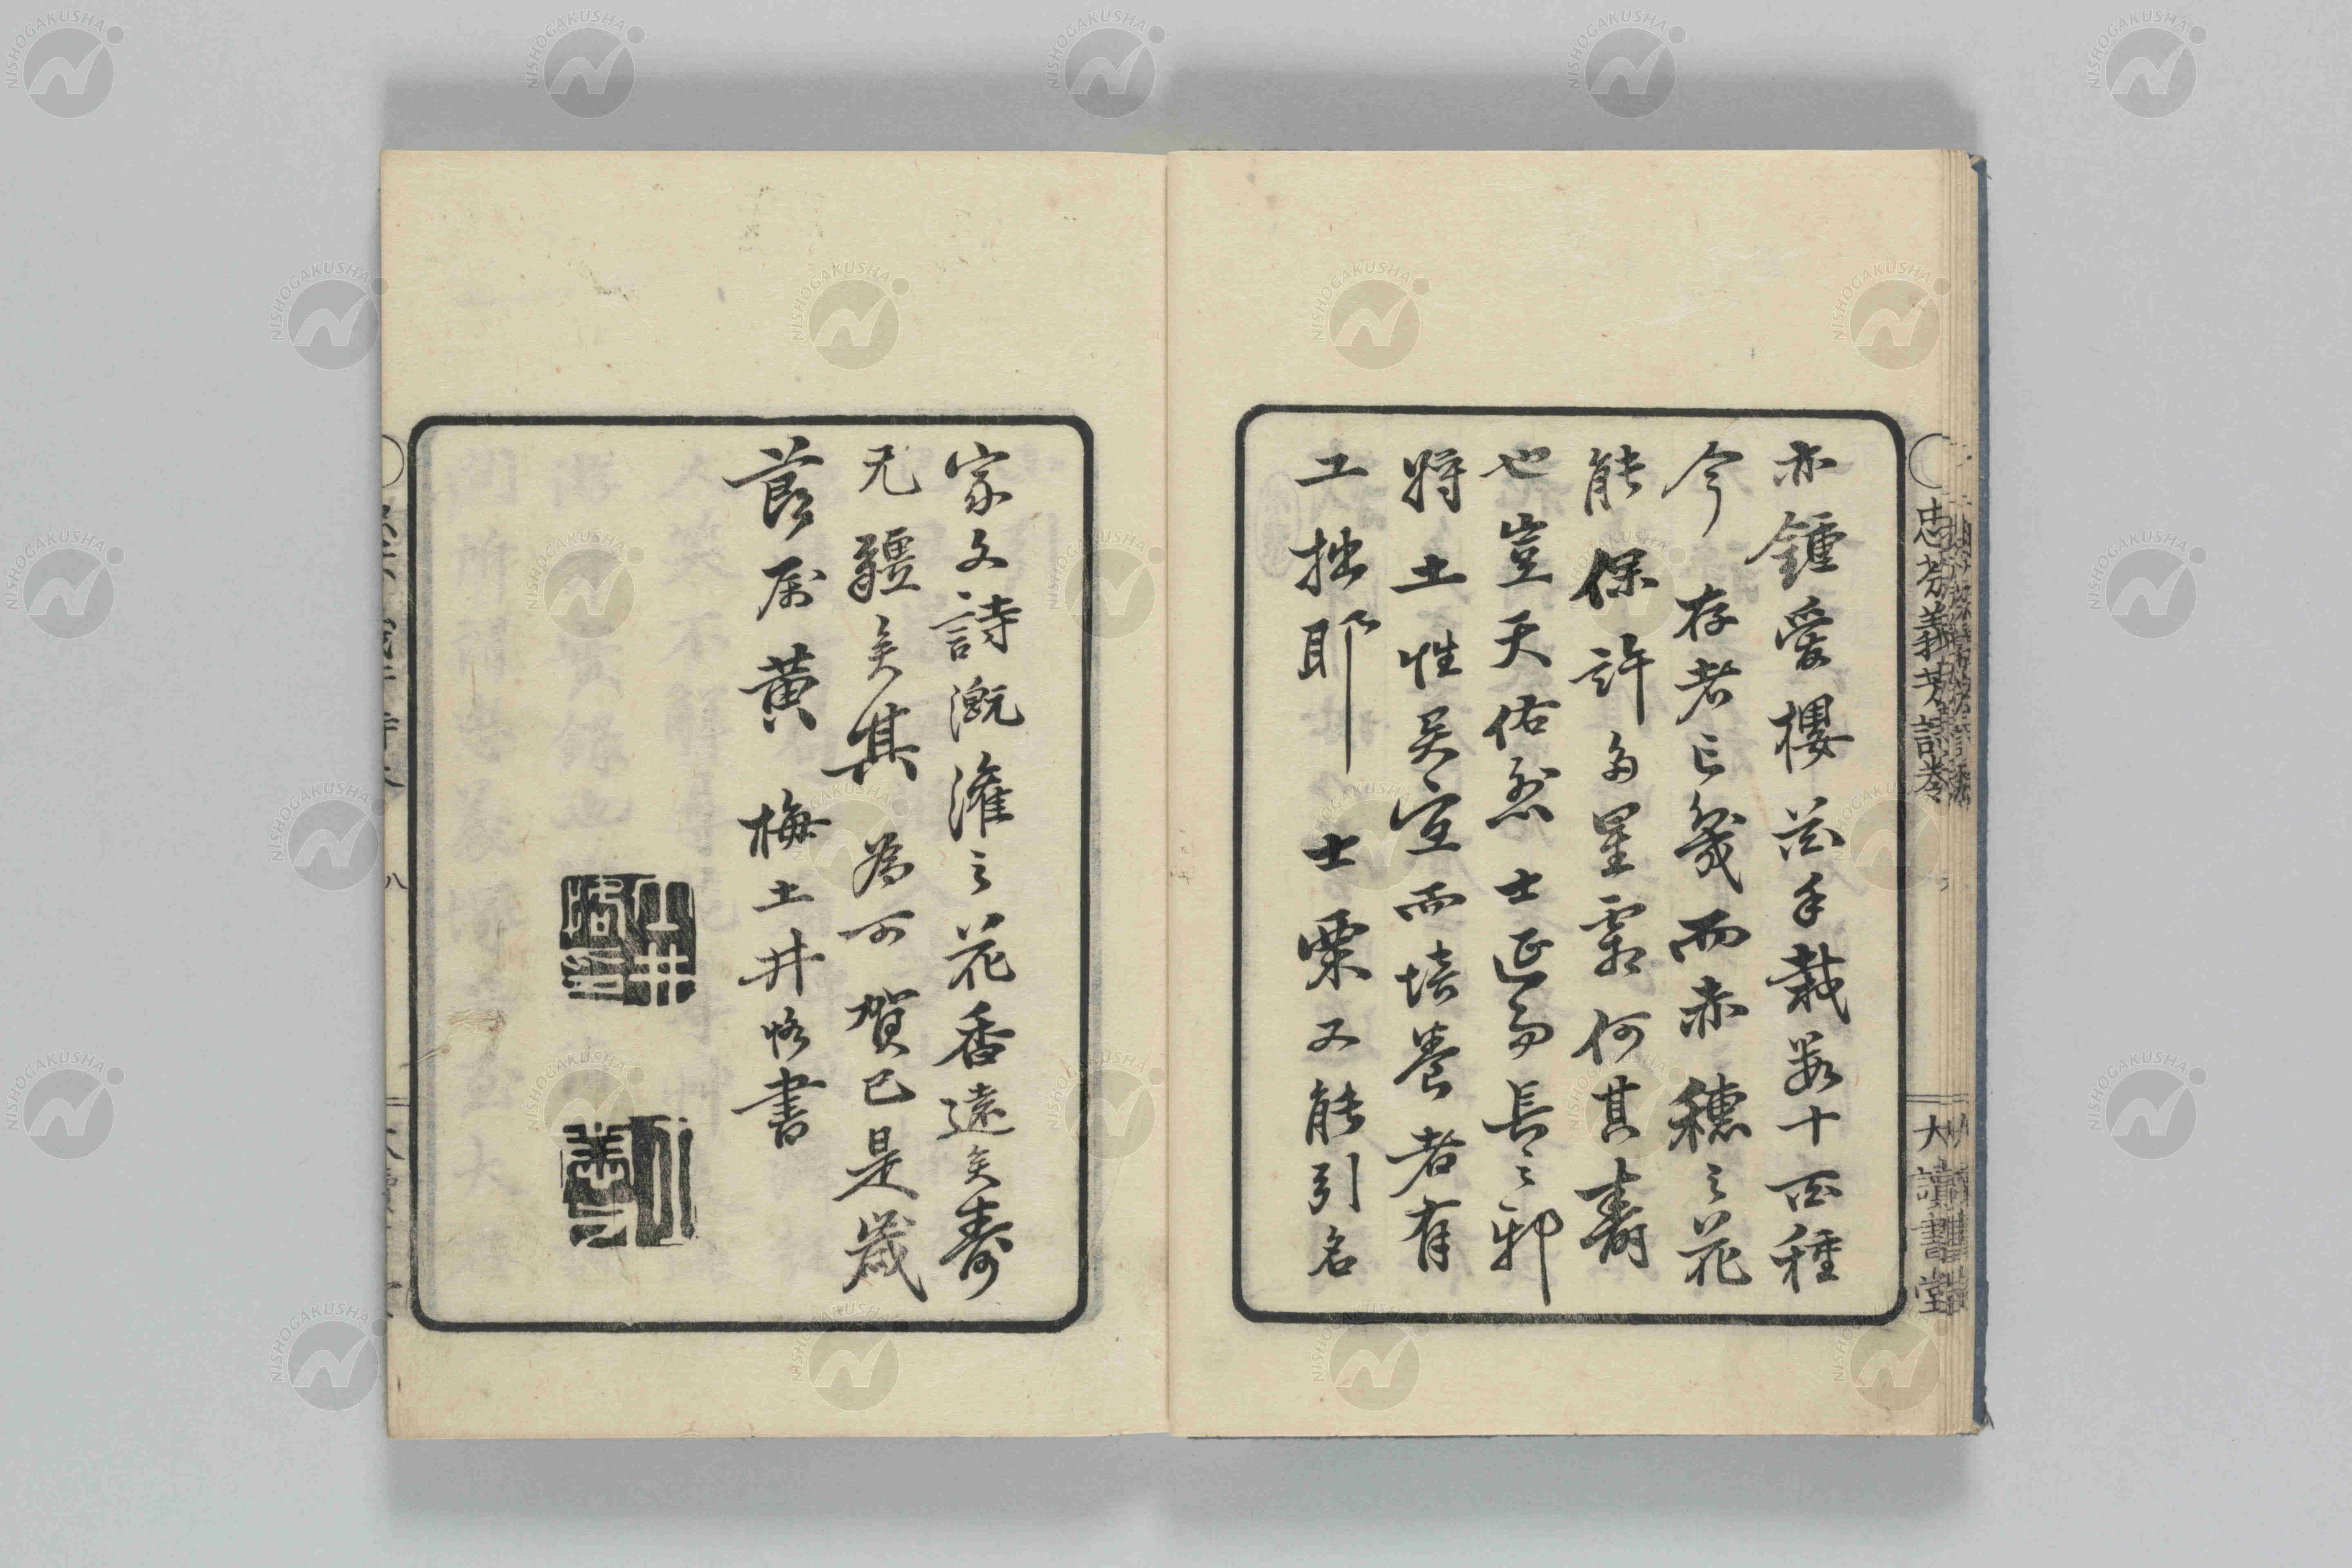 亦鍾愛櫻花手栽數十百種
今存者已幾而赤穗之花
能保許多星霜何其壽
也豈天佑烈士延而長之邪
將土性異宜而培養者有
工拙耶士粟又能引名
家文詩漑灌之花香遠矣壽
无疆矣其為可賀已是歲
蒞屠黃梅土井恪書
忠芬義芳詩卷
大讀書堂
八
土井恪印
NISHOGAKUSHA